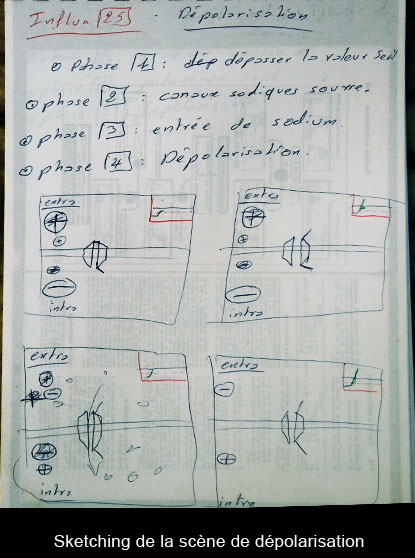 Influx [25] - Dépolarisation
⊙ Phase [1] : dép dépasser la valeur seuil
⊙ phase [2] : canaux sodiques souvre.
⊙ phase [3] : entrée de sodium
⊙ phase [4] : Dépolarisation.
extra
+
+
+
−
intra
extra
+
+
+
−
intra
extra
+
−
+
+
intra
extra
−
+
intra
Sketching de la scène de dépolarisation